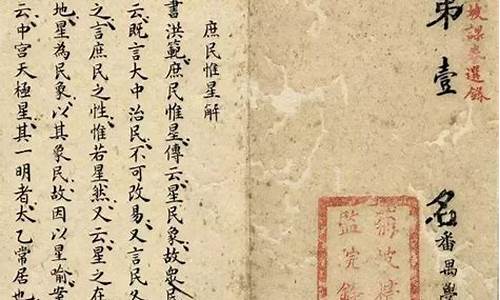 坡課卷選錄
第壹名番禺學
庶民惟星解
書洪範庶民惟星傳云星民象故衆民
云既言大中治民不可改易又言民
之言庶民之性惟若星然又云星之在
地星為民象以其象民故因以星喻案
云中宮天極星其一明者太乙常居也
菊坡
監院錄